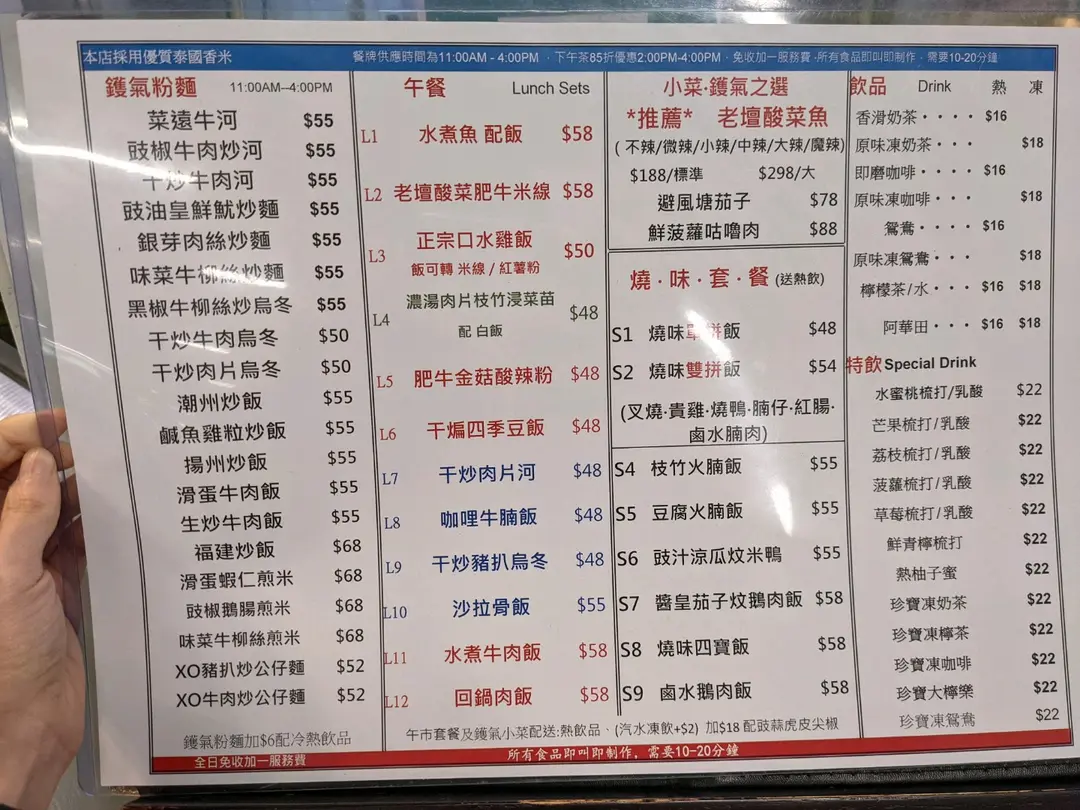 本店採用優質泰國香米
餐牌供應時間為11:00AM - 4:00PM ‧ 下午茶85折優惠2:00PM-4:00PM ‧ 免收加一服務費 ‧所有食品即叫即制作﹐需要10-20分鐘
鑊氣粉麵 11:00AM--4:00PM
菜遠牛河 $55
豉椒牛肉炒河 $55
干炒牛肉河 $55
豉油皇鮮魷炒麵 $55
銀芽肉絲炒麵 $55
味菜牛柳絲炒麵 $55
黑椒牛柳絲炒烏冬 $55
干炒牛肉烏冬 $50
干炒肉片烏冬 $50
潮州炒飯 $55
鹹魚雞粒炒飯 $55
揚州炒飯 $55
滑蛋牛肉飯 $55
生炒牛肉飯 $55
福建炒飯 $68
滑蛋蝦仁煎米 $68
豉椒鵝腸煎米 $68
味菜牛柳絲煎米 $68
XO豬扒炒公仔麵 $52
XO牛肉炒公仔麵 $52
鑊氣粉麵加$6配冷熱飲品
午餐 Lunch Sets
L1 水煮魚 配飯 $58
L2 老壇酸菜肥牛米線 $58
L3 正宗口水雞飯 $50
飯可轉 米線 / 紅薯粉
L4 濃湯肉片枝竹浸菜苗 $48
配 白飯
L5 肥牛金菇酸辣粉 $48
L6 干煸四季豆飯 $48
L7 干炒肉片河 $48
L8 咖哩牛腩飯 $48
L9 干炒豬扒烏冬 $48
L10 沙拉骨飯 $55
L11 水煮牛肉飯 $58
L12 回鍋肉飯 $58
小菜‧鑊氣之選
*推薦* 老壇酸菜魚
( 不辣/微辣/小辣/中辣/大辣/魔辣)
$188/標準 $298/大
避風塘茄子 $78
鮮菠蘿咕嚕肉 $88
燒‧味‧套‧餐 (送熱飲)
S1 燒味單拼飯 $48
S2 燒味雙拼飯 $54
(叉燒‧貴雞‧燒鴨‧腩仔‧紅腸‧
鹵水腩肉)
S4 枝竹火腩飯 $55
S5 豆腐火腩飯 $55
S6 豉汁涼瓜炆米鴨 $55
S7 醬皇茄子炆鵝肉飯 $58
S8 燒味四寶飯 $58
S9 鹵水鵝肉飯 $58
午市套餐及鑊氣小菜配送:熱飲品、(汽水凍飲+$2) 加$18 配豉蒜虎皮尖椒
飲品 Drink 熱 凍
香滑奶茶‧‧‧‧ $16
原味凍奶茶‧‧‧ $18
即磨咖啡‧‧‧‧ $16
原味凍咖啡‧‧‧ $18
鴛鴦‧‧‧‧ $16
原味凍鴛鴦‧‧‧ $18
檸檬茶/水‧‧‧ $16 $18
阿華田‧‧‧ $16 $18
特飲 Special Drink
水蜜桃梳打/乳酸 $22
芒果梳打/乳酸 $22
荔枝梳打/乳酸 $22
菠蘿梳打/乳酸 $22
草莓梳打/乳酸 $22
鮮青檸梳打 $22
熱柚子蜜 $22
珍寶凍奶茶 $22
珍寶凍檸茶 $22
珍寶凍咖啡 $22
珍寶大檸樂 $22
珍寶凍鴛鴦 $22
全日免收加一服務費
所有食品即叫即制作, 需要10-20分鐘